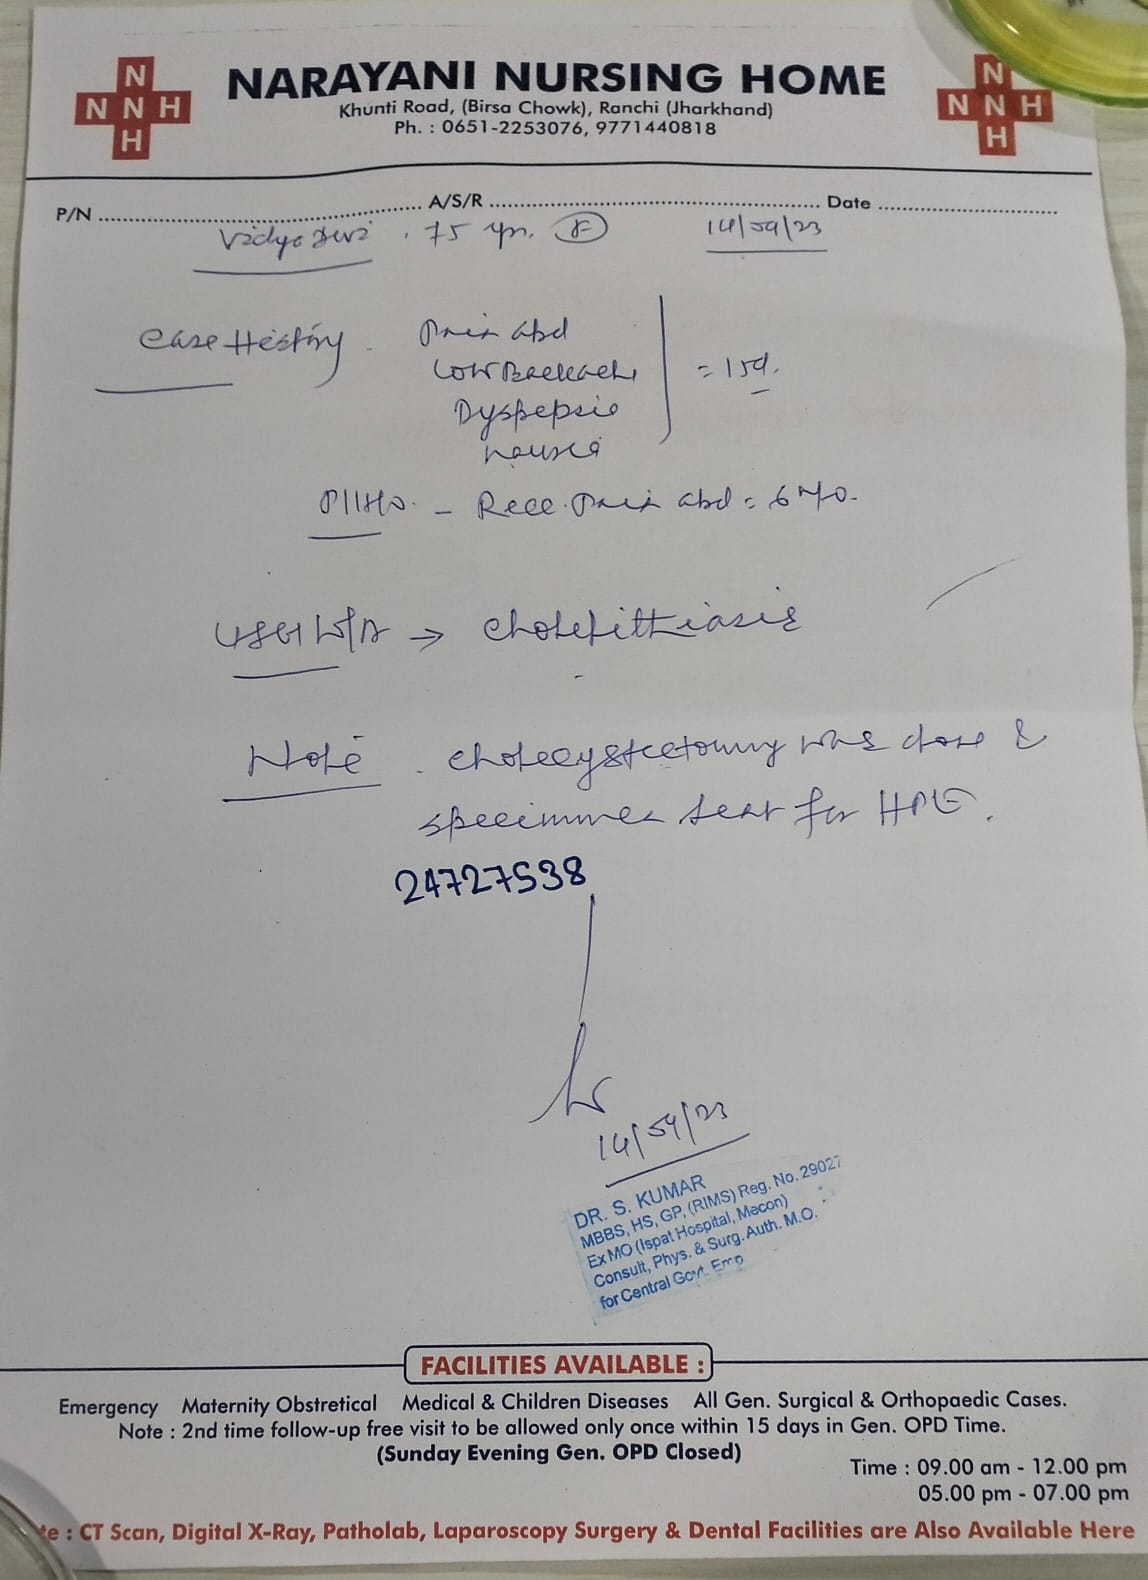 N
N N H
H
NARAYANI NURSING HOME
Khunti Road, (Birsa Chowk), Ranchi (Jharkhand)
Ph. : 0651-2253076, 9771440818
N
N N H
H
P/N A/S/R Date
Vidya Devi . 75 yrs. F 14/09/23
Case History . Pain abd
Low Backache = 15d.
Dyspepsia
nausea
P/H/O. - Recc. Pain abd = 6 M/o.
USG W/A → Cholelithiasis
Note . Cholecystectomy was done &
specimen sent for HPE.
24727538
14/09/23
DR. S. KUMAR
MBBS, HS, GP, (RIMS) Reg. No. 29027
Ex MO (Ispat Hospital, Mecon)
Consult, Phys. & Surg. Auth. M.O.
for Central Govt. Emp
FACILITIES AVAILABLE :
Emergency Maternity Obstretical Medical & Children Diseases All Gen. Surgical & Orthopaedic Cases.
Note : 2nd time follow-up free visit to be allowed only once within 15 days in Gen. OPD Time.
(Sunday Evening Gen. OPD Closed)
Time : 09.00 am - 12.00 pm
05.00 pm - 07.00 pm
te : CT Scan, Digital X-Ray, Patholab, Laparoscopy Surgery & Dental Facilities are Also Available Here